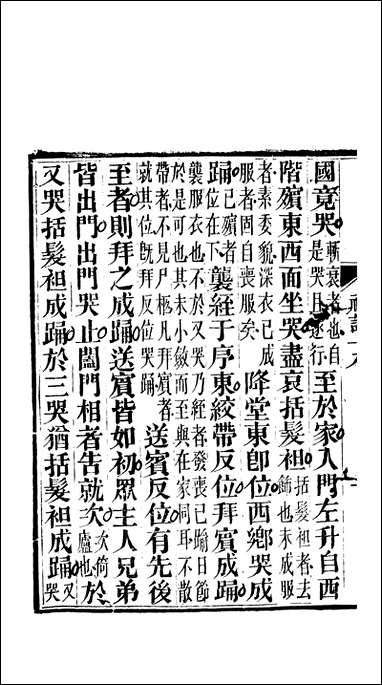 國竟哭斬衰者也自是哭且遂行至於家入門左升自西
階殯東西面坐哭盡哀括髮袒括髮者去飾也未成服
者素委貌深衣已成服者固自喪服矣降堂東卽位西鄉哭成
踊已殯者位在下襲絰于序東絞帶反位拜賓成踊
襲服衣也不於又哭乃絰者發喪已踰日節於是可也其未小斂而至與在家同耳不散
帶者不見尸柩凡拜賓者就其位旣拜反位哭踊送賓反位有先後
至者則拜之成踊送賓皆如初眾主人兄弟
皆出門出門哭止闔門相者告就次次倚廬也於
又哭括髮袒成踊於三哭猶括髮袒成踊又哭